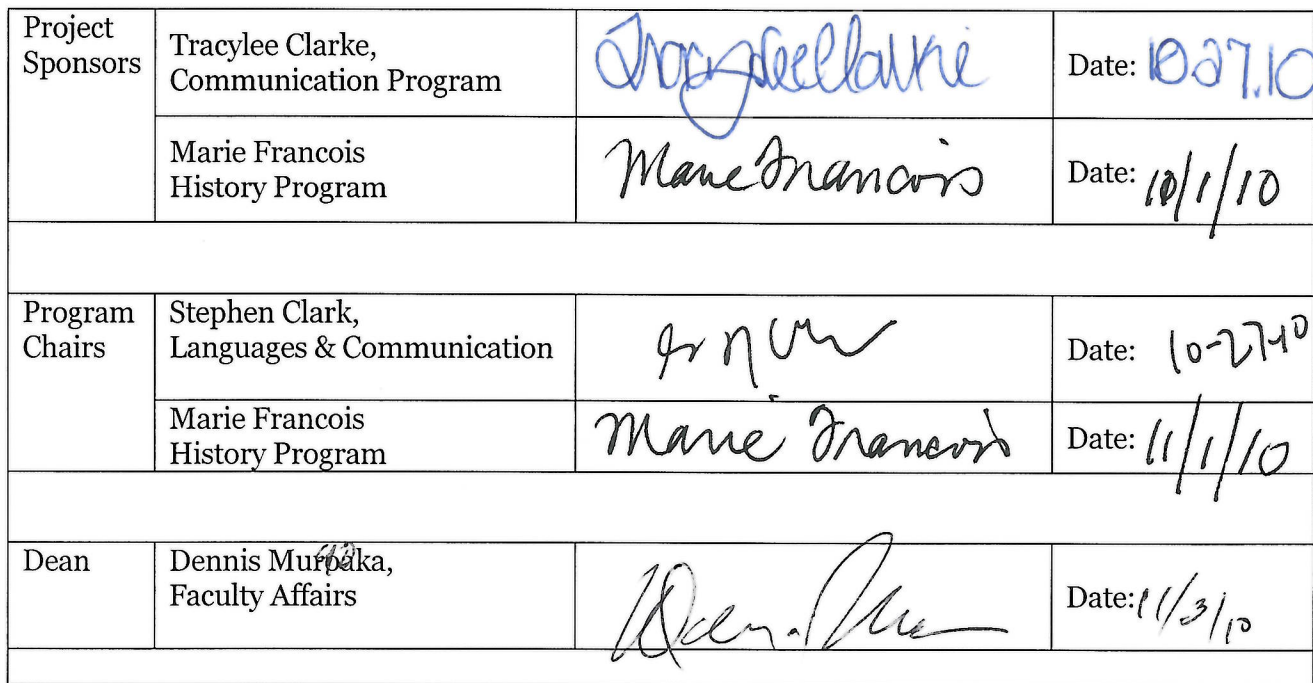 Project
Sponsors
Tracylee Clarke,
Communication Program
Tracylee Clarke
Date: 10.27.10
Marie Francois
History Program
Marie Francois
Date: 10/1/10
Program
Chairs
Stephen Clark,
Languages & Communication
Date: 10-27-10
Marie Francois
History Program
Marie Francois
Date: 11/1/10
Dean
Dennis
Faculty Affairs
Date: 11/3/10